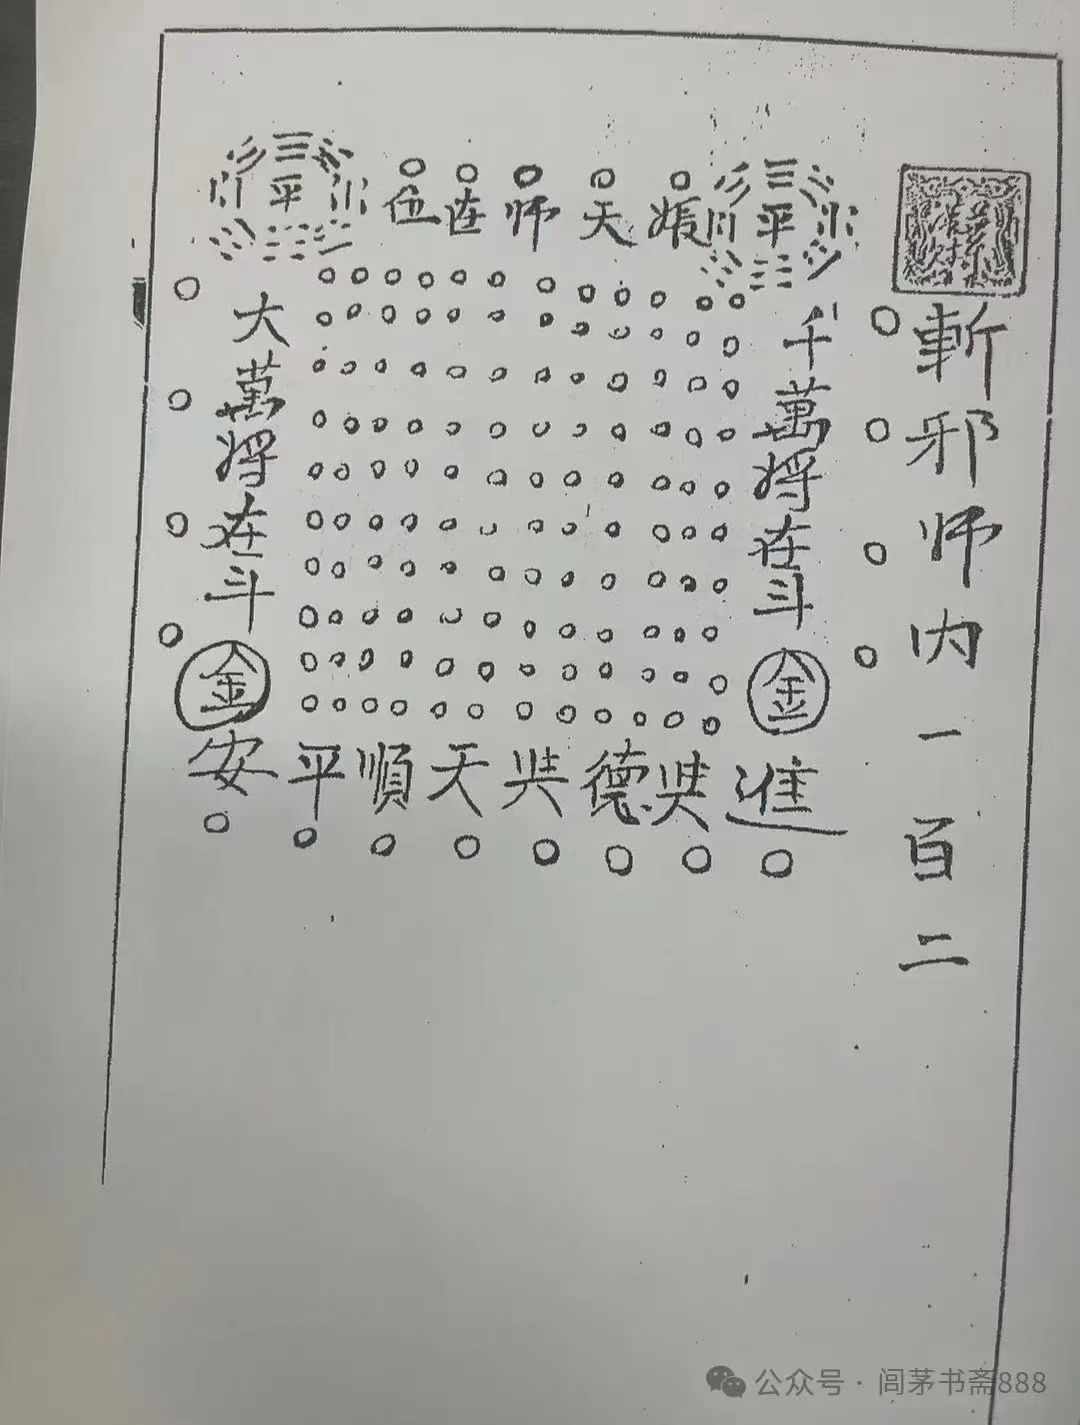 斬邪师内一百二
平
娠天师在伍
平
千萬将在斗金
大萬将在斗金
進奘德奘天順平安
公众号·闾茅书斋888